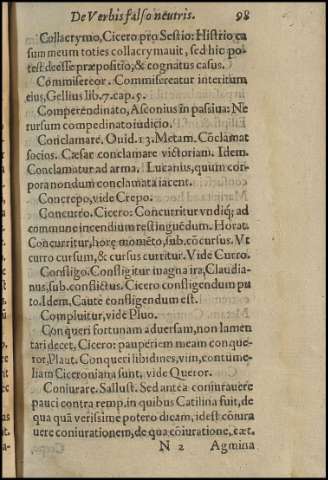 De Verbis falso neutris. 98
Collacrymo, Cicero pro Sestio: Histrio ca
sum meum toties collacrymauit, sed hic po-
test deesse præpositio, & cognatus casus.
Commisereor. Commisereatur interitum
eius, Gellius lib. 7. cap. 5.
Comperendinato, Asconius in passiua: Ne
rursum compedinato iudicio.
Conclamare. Ouid. 13. Metam. Cõclamat
socios. Cæsar conclamare victoriam. Idem.
Conclamatur ad arma. Lucanus, quum cor-
pora nondum conclamata iacent.
Concrepo, vide Crepo.
Concurro. Cicero: Concurritur vndiq; ad
commune incendium restinguẽdum. Horat.
Concurritur, horę momẽto, sub. cõcursus. Vt
curro cursum, & cursus curritur. Vide Curro.
Confligo. Confligitur magna ira, Claudia-
nus, sub. conflictus. Cicero confligendum pu
to. Idem. Caute confligendum est.
Compluitur, vide Pluo.
Conqueri fortunam aduersam, non lamen
tari decet, Cicero: pauperiem meam conque-
ror, Plaut. Conqueri libidines, vim, contume-
liam Ciceroniana sunt, vide Queror.
Coniurare. Sallust. Sed antea coniurauere
pauci contra remp. in quibus Catilina fuit, de
qua quã verissime potero dicam, id est cõiura
uere coniurationem, de qua cõiuratione, cæt.
N 2 Agmina